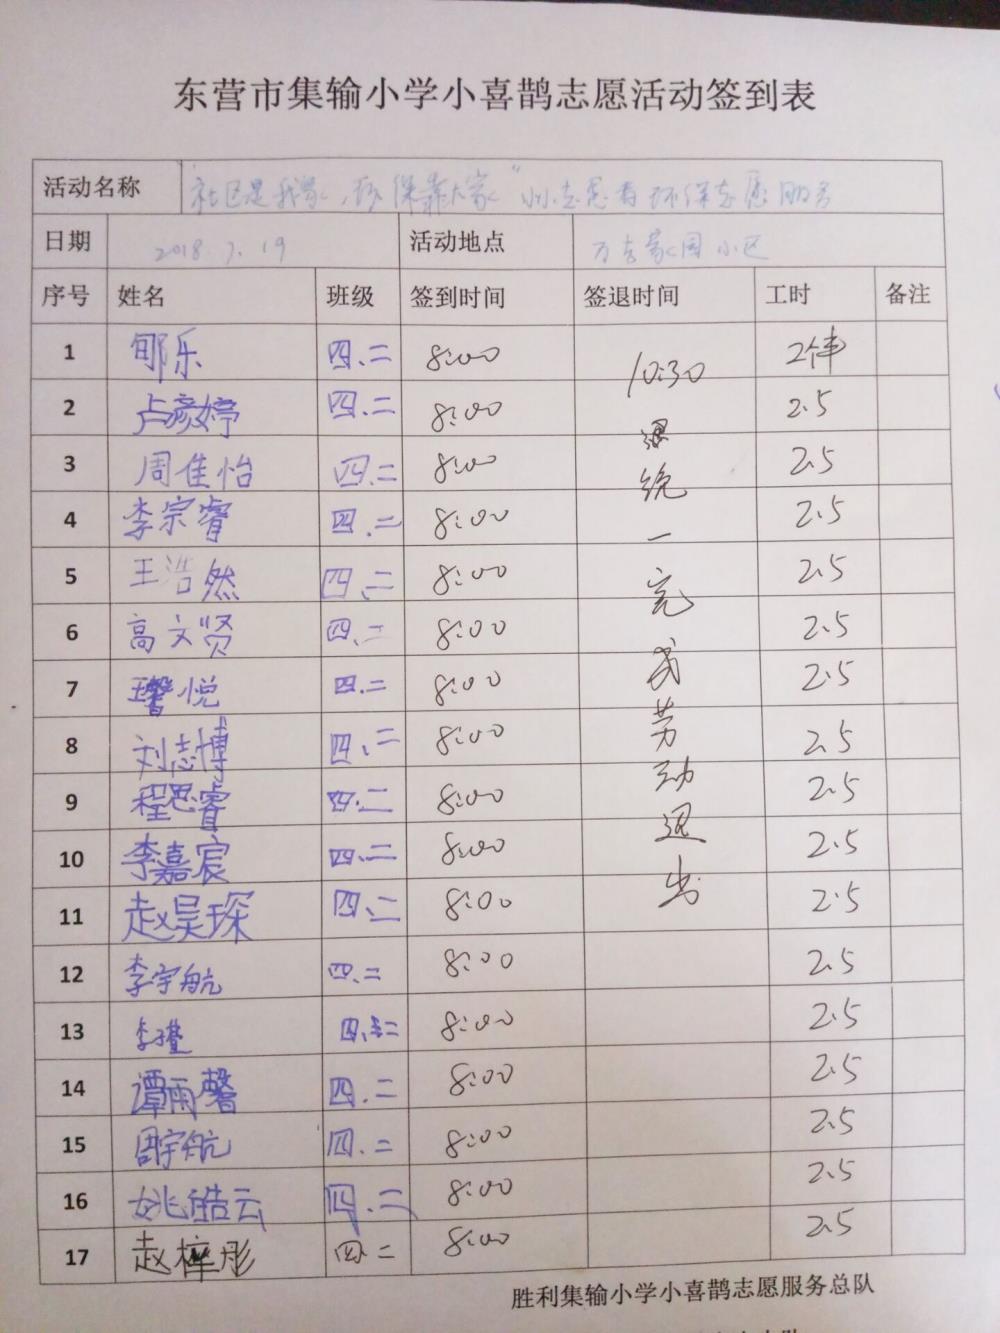 东营市集输小学小喜鹊志愿活动签到表
活动名称 社区是我家，环保靠大家" 小志愿者环保志愿服务
日期 2018.7.19 活动地点 万吉家园小区
序号 姓名 班级 签到时间 签退时间 工时 备注
1 郇乐 四.二 8:00 10:30
2 卢彦婷 四.二 8:00 2.5
3 周佳怡 四.二 8:00 统 2.5
4 李宗睿 四.二 8:00 一 2.5
5 王浩然 四、二 8:00 完 2.5
6 高文贤 四.二 8:00 2.5
7 悦 四.二 8:00 成 2.5
8 刘志博 四、二 8:00 劳 2.5
9 程思睿 四.二 8:00 动 2.5
10 李嘉宸 四.二 8:00 退 2.5
11 赵昊琛 四、二 8:00 出 2.5
12 李宇航 四.二 8:00 2.5
13 李 四.二 8:00 2.5
14 谭雨馨 四.二 8:00 2.5
15 周宇航 四.二 8:00 2.5
16 姚皓云 四.二 8:00 2.5
17 赵梓彤 四.二 8:00 2.5
胜利集输小学小喜鹊志愿服务总队